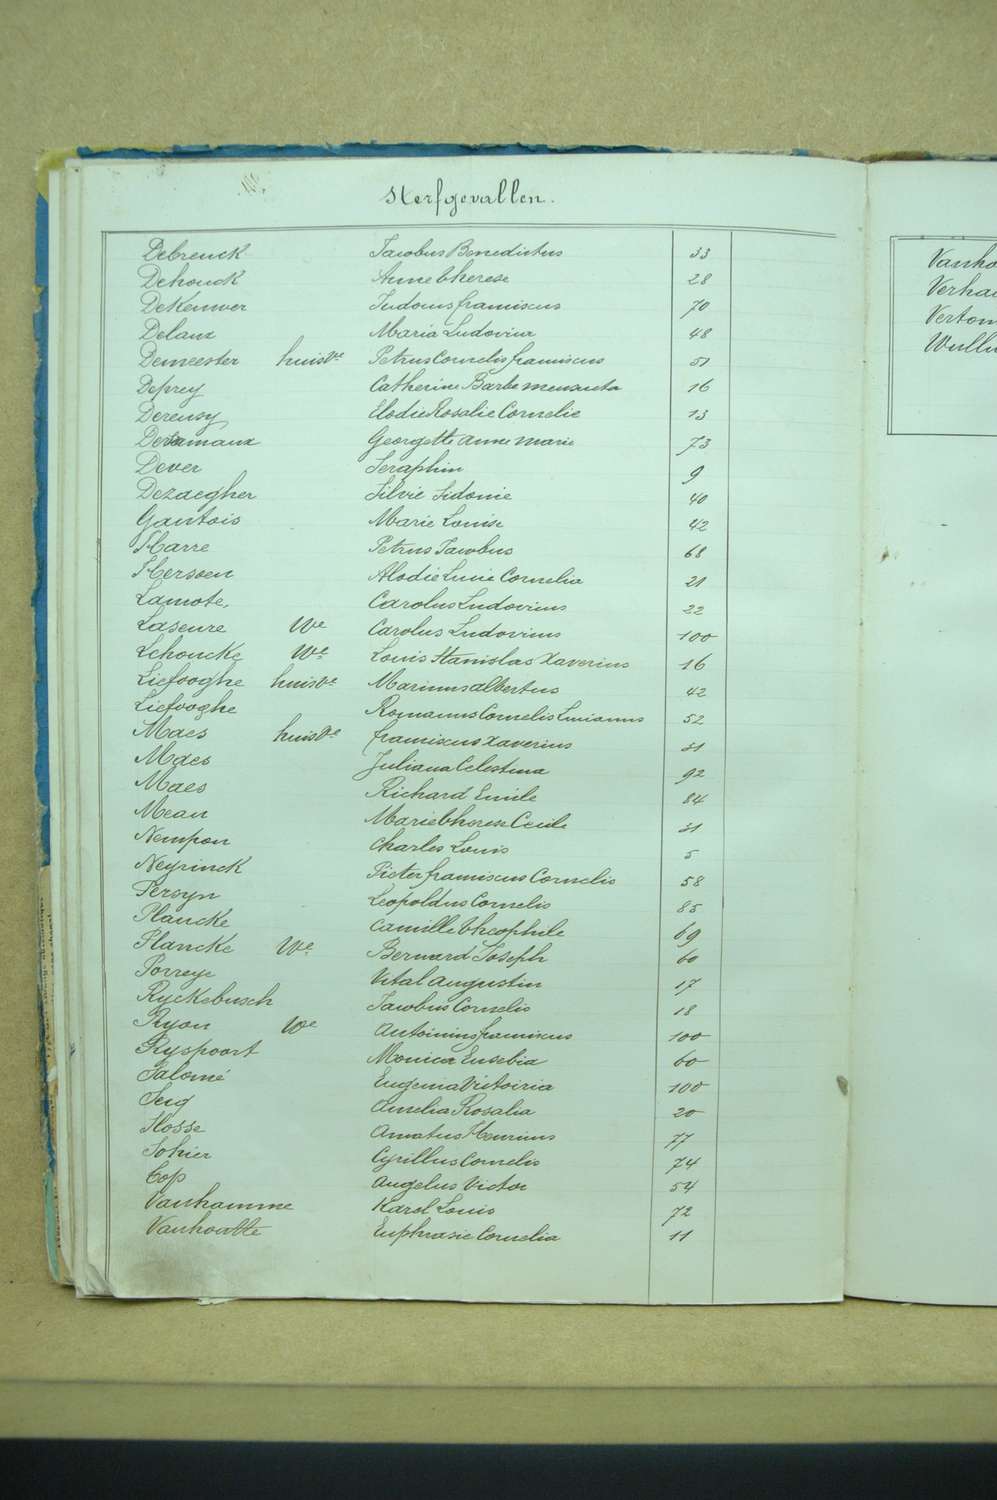 Sterfgevallen.
Debreuck Jacobus Benedictus 33
Dehouck Anne Therese 28
DeKeuwer Judocus franciscus 70
Delanx Maria Ludovica 48
Demeester huisve Petrus Cornelis franciscus 51
Deprey Catherine Barbe 16
Dereusy Elodie Rosalie Cornelie 13
Georgette Anne Marie 73
Dever Seraphin 9
Dezaegher Silvie Sidonie 40
Gantois Marie Louise 42
Harre Petrus Jacobus 68
Hersoen Alodie Lucie Cornelia 21
Lamote Carolus Ludovicus 22
Laseure We Carolus Ludovicus 100
Lehoucke We Louis Stanislas Xaverius 16
Liefooghe huisve Marinus albertus 42
Liefooghe Romanus Cornelis Lucianus 52
Maes huisve franciscus Xaverius 31
Maes Juliana Celestina 92
Maes Richard Emile 84
Mean Marie Therese Cecile 31
Nempon Charles Louis 5
Neyrinck Pieter franciscus Cornelis 58
Persyn Leopoldus Cornelis 85
Plancke Camille Theophile 69
Plancke We Bernard Joseph 60
Porreye Vital Augustin 17
Ryckebusch Jacobus Cornelis 18
Ryon We Antoinius franciscus 100
Ryspoort Monica Eusebia 60
Salomé Eugenia Victoiria 100
Seig Amelia Rosalia 20
Slosse Amatus Henricus 77
Sohier Cyrillus Cornelis 74
Top Angelus Victor 54
Vanhamme Karel Louis 72
Vanhoutte Euphrasie Cornelia 11
Vanho
Verha
Vertom
Wullu